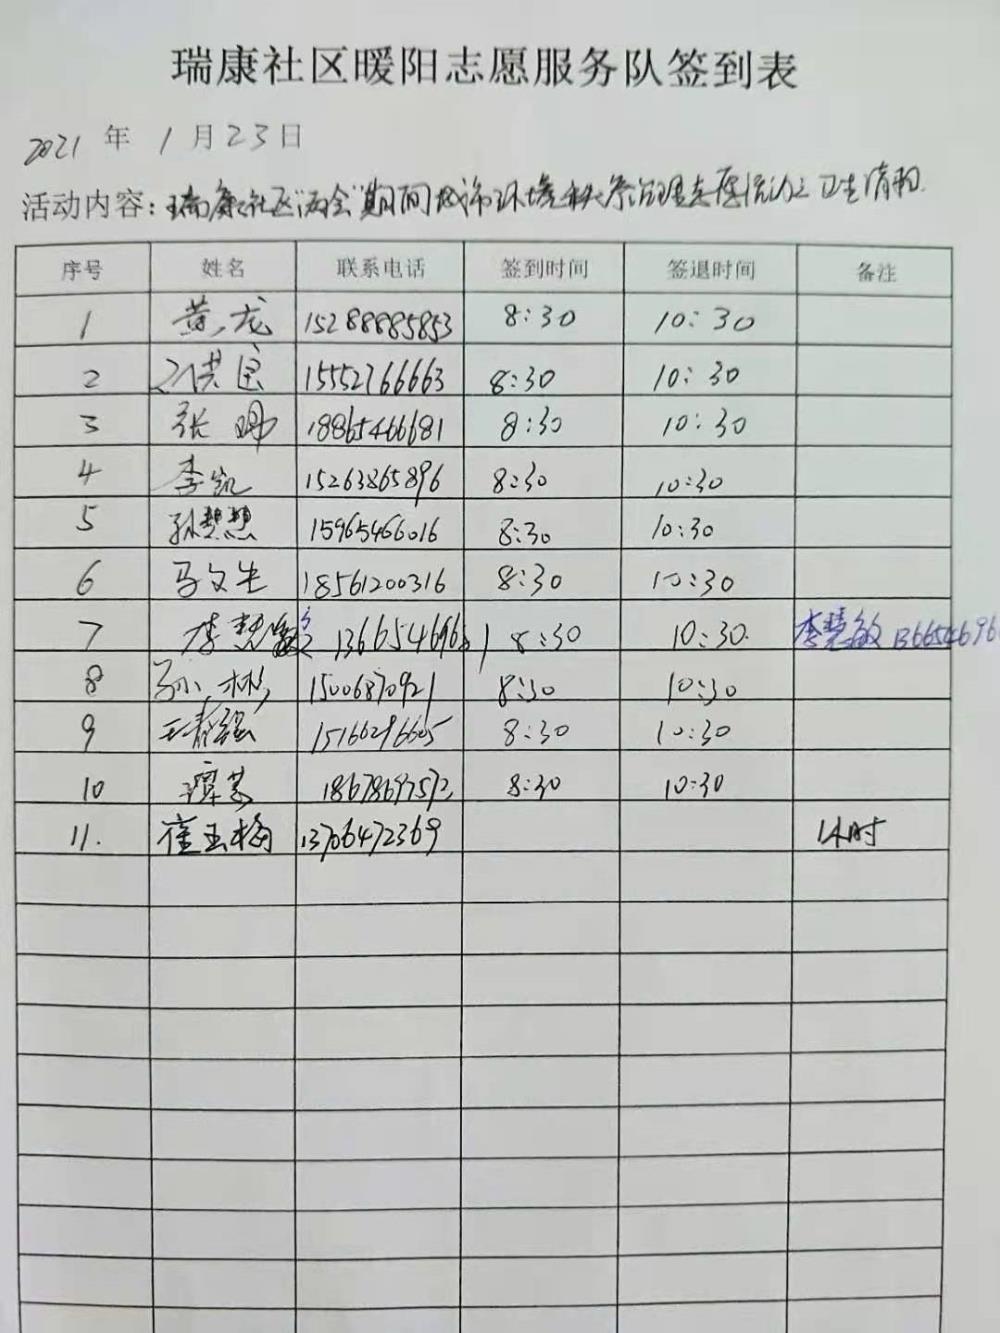 瑞康社区暖阳志愿服务队签到表
2021 年 1 月 23 日
活动内容: 瑞康社区"两会"期间城市环境秩序治理志愿活动之卫生清扫.
序号 姓名 联系电话 签到时间 签退时间 备注
1 黄龙 15288885853 8:30 10:30
2 15552766663 8:30 10:30
3 张 18865466681 8:30 10:30
4 李凯 15263865896 8:30 10:30
5 孙慧慧 15965466016 8:30 10:30
6 马文生 18561200316 8:30 10:30
7 李慧敏 8:30 10:30. 李慧敏 136654696
8 孙林 15006870921 8:30 10:30
9 王春强 15166296605 8:30 10:30
10 谭芸 8:30 10:30
11. 崔玉梅 13706472369 1小时